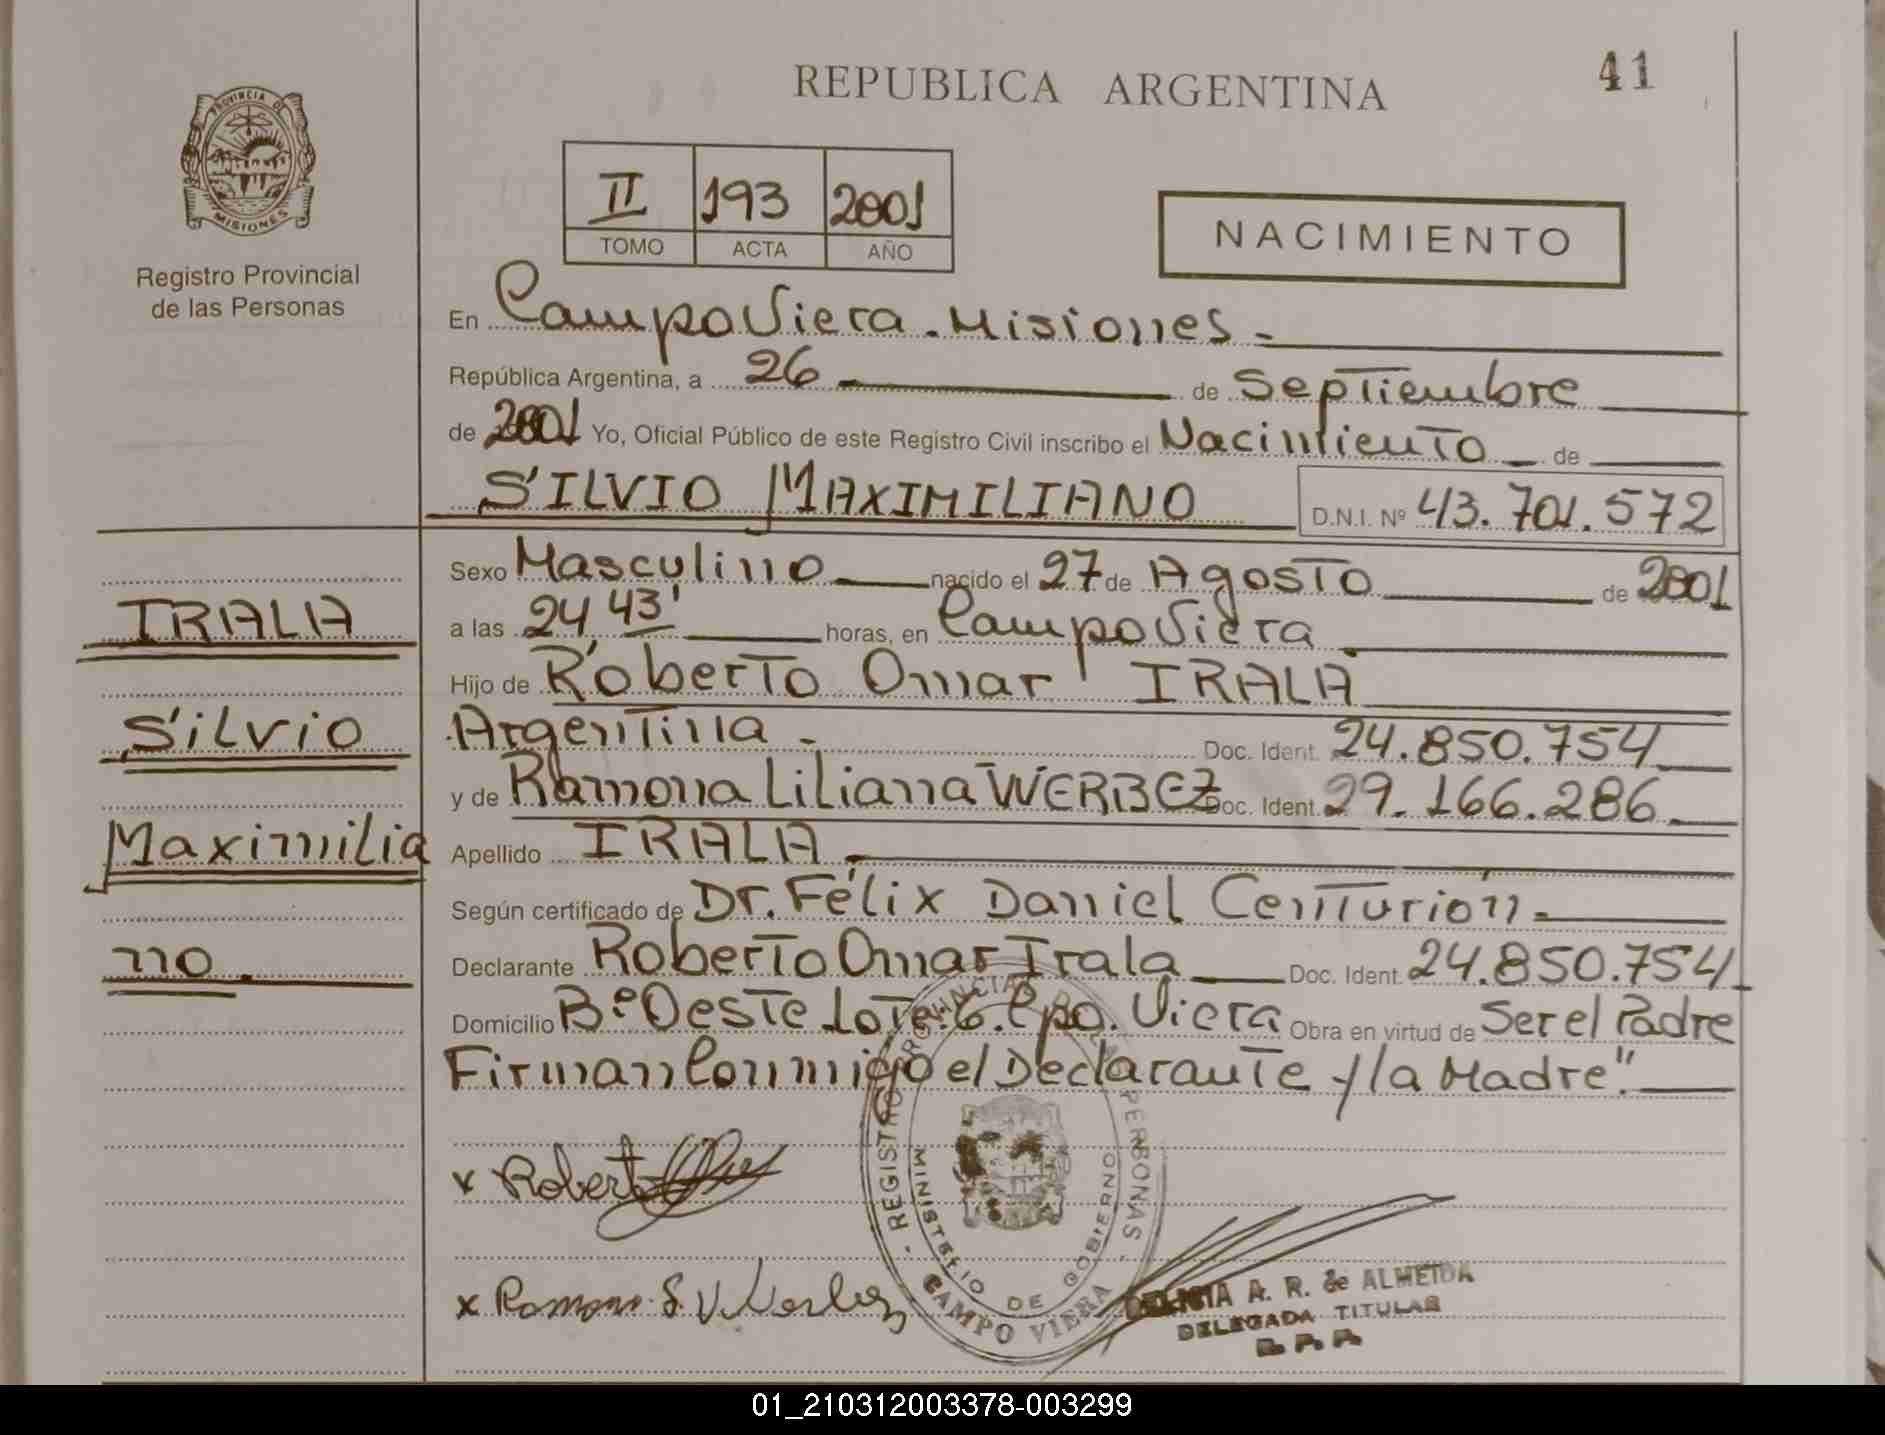 41
REPUBLICA ARGENTINA
PROVINCIA DE
MISIONES
Registro Provincial
de las Personas
II 193 2001
TOMO ACTA AÑO
NACIMIENTO
En Campo Viera - Misiones -
República Argentina, a 26 de Septiembre
de 2001 Yo, Oficial Público de este Registro Civil inscribo el Nacimiento de
SILVIO MAXIMILIANO D.N.I. Nº 43.701.572
Sexo Masculino nacido el 27 de Agosto de 2001
a las 24 43' horas, en Campo Viera
Hijo de Roberto Omar IRALA
Argentina - Doc. Ident. 24.850.754
y de Ramona Liliana WERBEZ Doc. Ident. 29.166.286
Apellido IRALA
Según certificado de Dr. Félix Daniel Centurión
Declarante Roberto Omar Irala Doc. Ident. 24.850.754
Domicilio Bº Oeste Lote: 6. Cpo. Viera Obra en virtud de Ser el Padre
Firman Conmigo el Declarante y la Madre".
IRALA
Silvio
Maximilia
no.
x Roberto
x Ramona
REGISTRO PROVINCIAL DE LAS PERSONAS
MINISTERIO DE GOBIERNO
CAMPO VIERA
A. R. de ALMEIDA
DELEGADA TITULAR
01_210312003378-003299